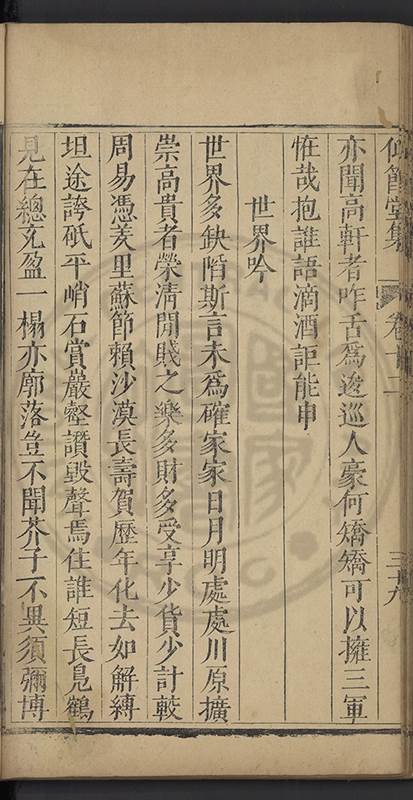 仰節堂集 卷十二 三十六
亦聞高軒者咋舌為逡巡人豪何矯矯可以擁三軍
恠哉抱誰語滴酒詎能申
世界吟
世界多缺陷斯言未為確家家日月明處處川原擴
崇高貴者榮清閒賤之樂多財多受享少貨少計較
周易憑羑里蘇節賴沙漠長壽賀歷年化去如解縛
坦途誇砥平峭石賞巖壑讚毀聲焉住誰短長鳧鶴
見在總充盈一榻亦廓落豈不聞芥子不異須彌博